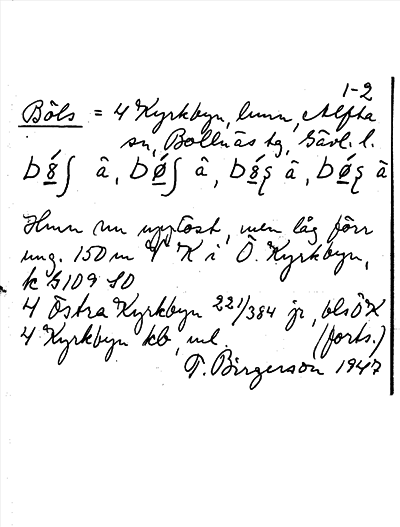 1-2
Böls = 4 Kyrkbyn, hmn, Alfta
sn, Bollnäs tg, Gävl. l.
Hmn nu upplöst, men låg förr
ung. 150 m V K i Ö. Kyrkbyn,
k G109 SO
4 Östra Kyrkbyn 221/384 jr, blsÖK
4 Kyrkbyn kb, ml. (forts.)
T. Birgerson 1947